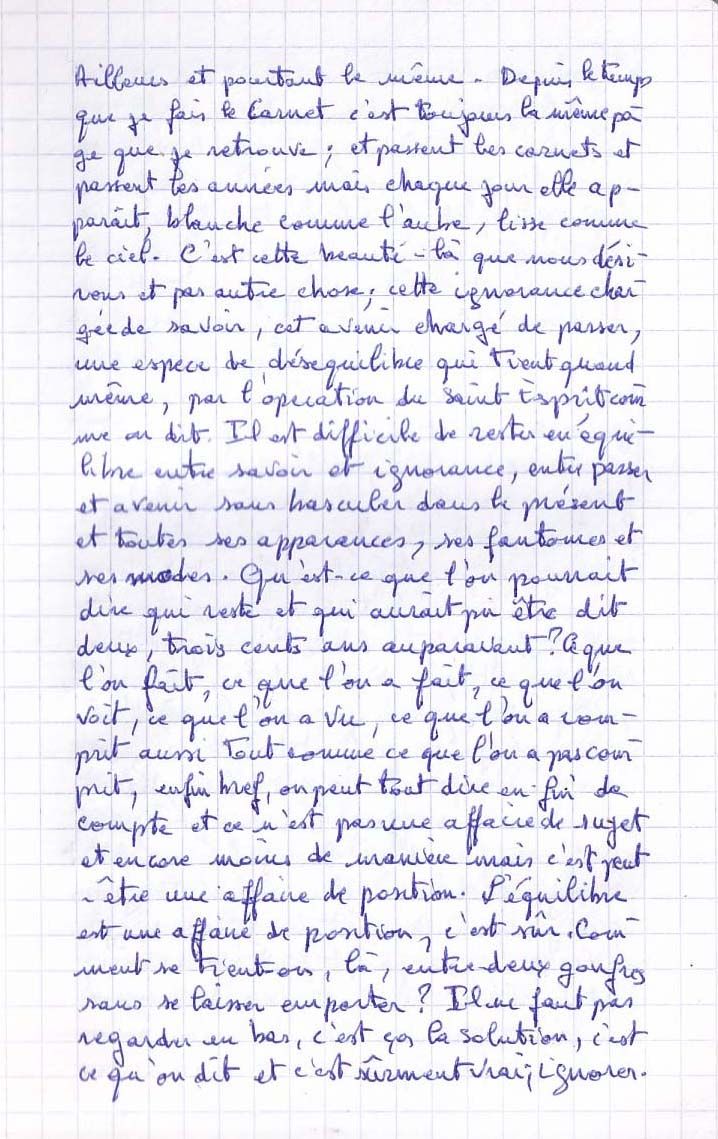 Ailleurs et pourtant le même. Depuis le temps
que je fais le Carnet c'est toujours la même pa-
ge que je retrouve ; et passent les carnets et
passent les années mais chaque jour elle ap-
paraît, blanche comme l'aube, lisse comme
le ciel. C'est cette beauté-là que nous dési-
rons et pas autre chose ; cette ignorance char-
gée de savoir, cet avenir chargé de passer,
une espece de désequilibre qui tient quand
même, par l'opération du Saint Esprit com-
me on dit. Il est difficile de rester en équi-
libre entre savoir et ignorance, entre passer
et avenir sans basculer dans le présent
et toutes ses apparences, ses fantomes et
ses modes. Qu'est-ce que l'on pourrait
dire qui reste et qui aurait pu être dit
deux, trois cents ans auparavant ? Ce que
l'on fait, ce que l'on a fait, ce que l'on
voit, ce que l'on a vu, ce que l'on a com-
prit aussi tout comme ce que l'on a pas com-
prit, enfin bref, on peut tout dire en fin de
compte et ce n'est pas une affaire de sujet
et encore moins de manière mais c'est peut
-être une affaire de position. L'équilibre
est une affaire de position, c'est sûr. Com-
ment se tient-on, là, entre deux gouffres
sans se laisser emporter ? Il ne faut pas
regarder en bas, c'est ça la solution, c'est
ce qu'on dit et c'est sûrment vrai ; ignorer.